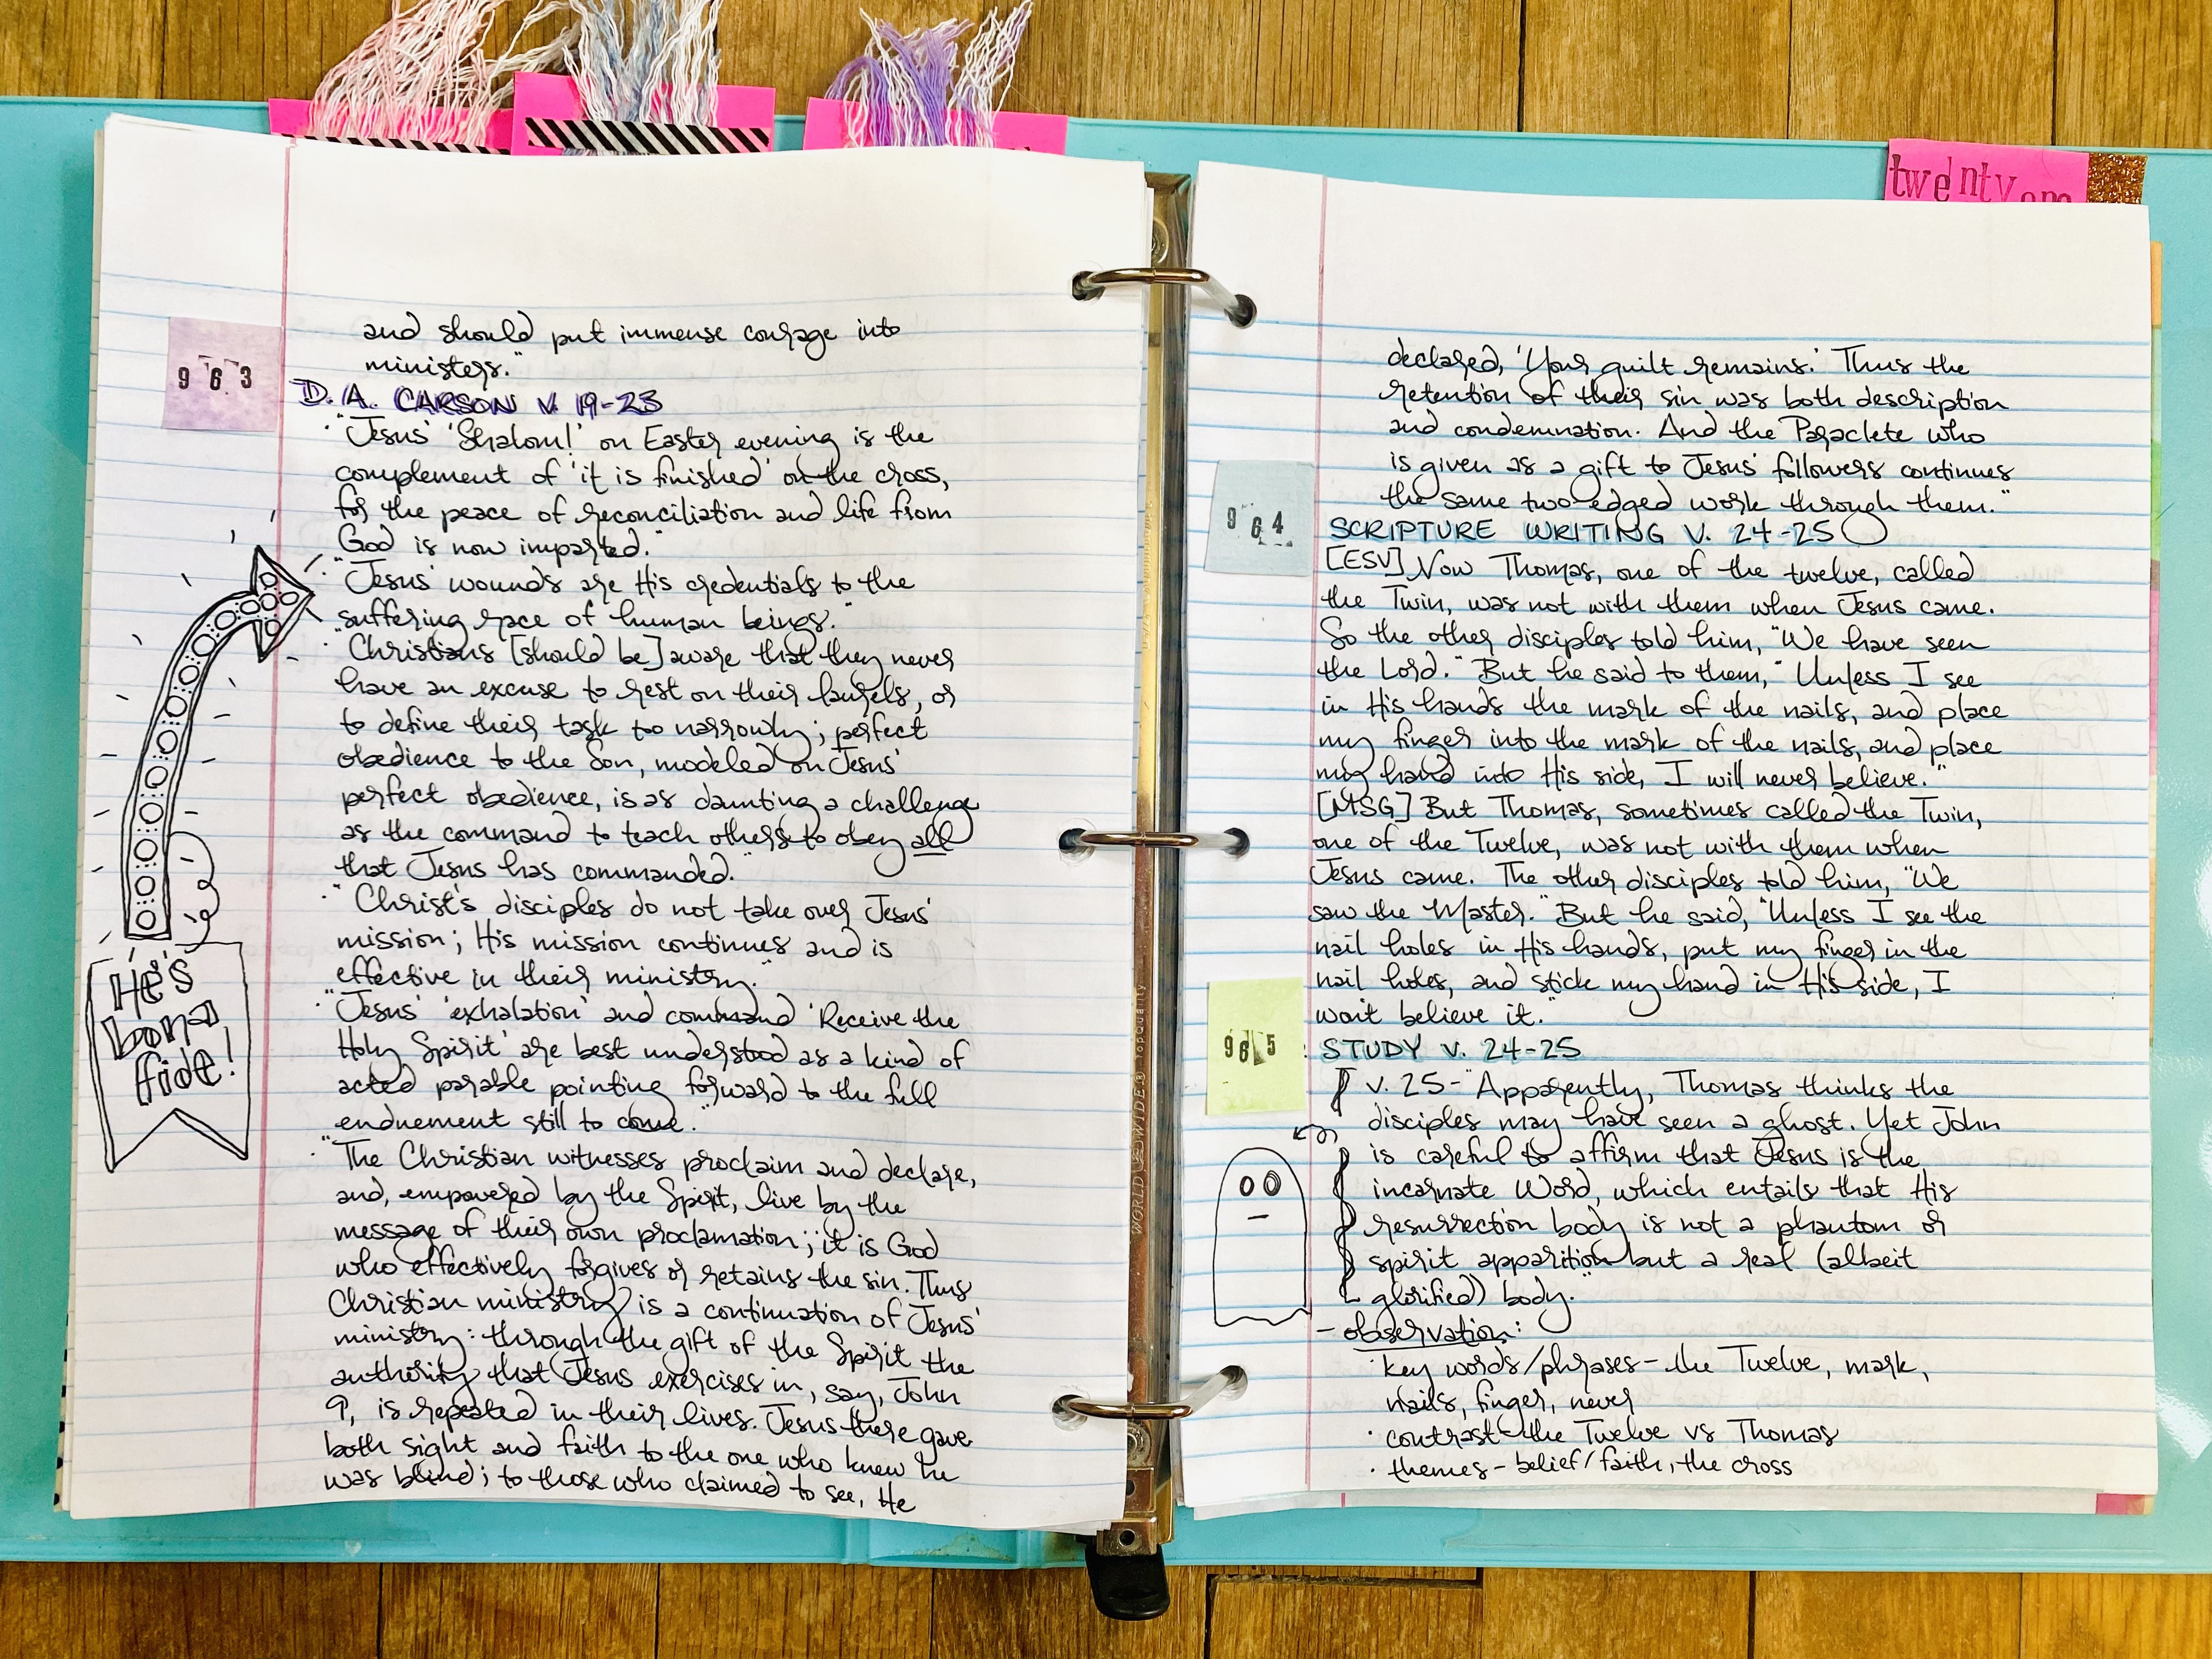 and should put immense courage into
ministers."
963
D. A. CARSON V. 19-23
· "Jesus' 'Shalom!' on Easter evening is the
complement of 'it is finished' on the cross,
for the peace of reconciliation and life from
God is now imparted."
· "Jesus' wounds are His credentials to the
suffering race of human beings."
· "Christians [should be] aware that they never
have an excuse to rest on their laurels, or
to define their task too narrowly; perfect
obedience to the Son, modeled on Jesus'
perfect obedience, is as daunting a challenge
as the command to teach others to obey all
that Jesus has commanded."
· "Christ's disciples do not take over Jesus'
mission; His mission continues and is
effective in their ministry."
He's
bona
fide!
· "Jesus' 'exhalation' and command 'Receive the
Holy Spirit' are best understood as a kind of
acted parable pointing forward to the full
enduement still to come."
· "The Christian witnesses proclaim and declare,
and, empowered by the Spirit, live by the
message of their own proclamation; it is God
who effectively forgives or retains the sin. Thus
Christian ministry is a continuation of Jesus'
ministry: through the gift of the Spirit the
authority that Jesus exercises in, say, John
9, is repeated in their lives. Jesus there gave
both sight and faith to the one who knew he
was blind; to those who claimed to see, He
WORLD WIDE® TopQuality
twenty
declared, 'Your guilt remains.' Thus the
retention of their sin was both description
and condemnation. And the Paraclete who
is given as a gift to Jesus' followers continues
the same two-edged work through them."
964
SCRIPTURE WRITING V. 24-25
[ESV] Now Thomas, one of the twelve, called
the Twin, was not with them when Jesus came.
So the other disciples told him, "We have seen
the Lord." But he said to them, "Unless I see
in His hands the mark of the nails, and place
my finger into the mark of the nails, and place
my hand into His side, I will never believe."
[MSG] But Thomas, sometimes called the Twin,
one of the Twelve, was not with them when
Jesus came. The other disciples told him, "We
saw the Master." But he said, "Unless I see the
nail holes in His hands, put my finger in the
nail holes, and stick my hand in His side, I
won't believe it."
965
: STUDY V. 24-25
V. 25 - "Apparently, Thomas thinks the
disciples may have seen a ghost. Yet John
is careful to affirm that Jesus is the
incarnate Word, which entails that His
resurrection body is not a phantom or
spirit apparition but a real (albeit
glorified) body."
- observation:
· key words/phrases - the Twelve, mark,
nails, finger, never
· contrast - the Twelve vs Thomas
· themes - belief/faith, the cross